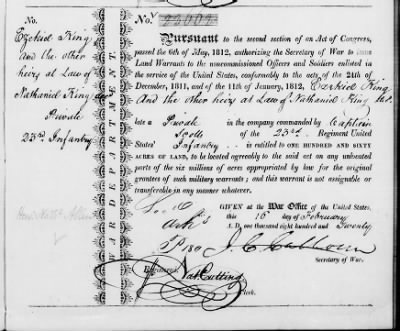 No. 23,002
Ezekiel King
And the other
heirs at Law of
Nathaniel King dec
Private
23rd Infantry
WAR DEPARTMENT
Pursuant to the second section of an Act of Congress,
passed the 6th of May, 1812, authorizing the Secretary of War to issue
Land Warrants to the noncommissioned Officers and Soldiers enlisted
in the service of the United States, conformably to the acts of the 24th of
December, 1811, and of the 11th of January, 1812, Ezekiel King
And the other heirs at Law of Nathaniel King dec.
late a Private in the company commanded by Captain
of the 23rd Regiment United
States' Infantry is entitled to ONE HUNDRED AND SIXTY
ACRES OF LAND, to be located agreeably to the said act on any unlocated
parts of the six millions of acres appropriated by law for the original
grantees of such military warrants; and this warrant is not assignable or
transferable in any manner whatever.
GIVEN at the War Office of the United States,
this 16 day of February
A. D. one thousand eight hundred and Twenty
J. C. Calhoun
Secretary of War.
Nat. Cutting
Clerk.